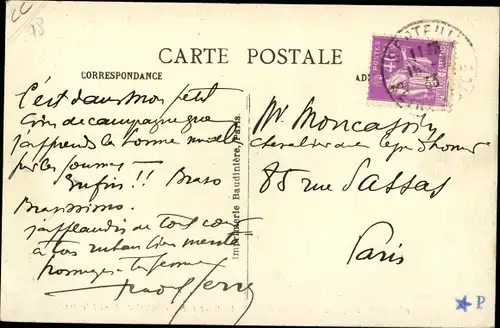 CC
78
CARTE POSTALE
CORRESPONDANCE
AD
POSTES
C'est dans mon petit
coin de campagne que
j'apprends la bonne nouvelle
par les journaux
Enfin !! Bravo
Bravissimo.
J'applaudis de tout cœur
à ton ruban bien mérité
hommages
Imprimerie Baudinière, Paris.
Mr. Moncassin
Chevalier de la Légion d'honneur
85 rue d'Assas
Paris
P